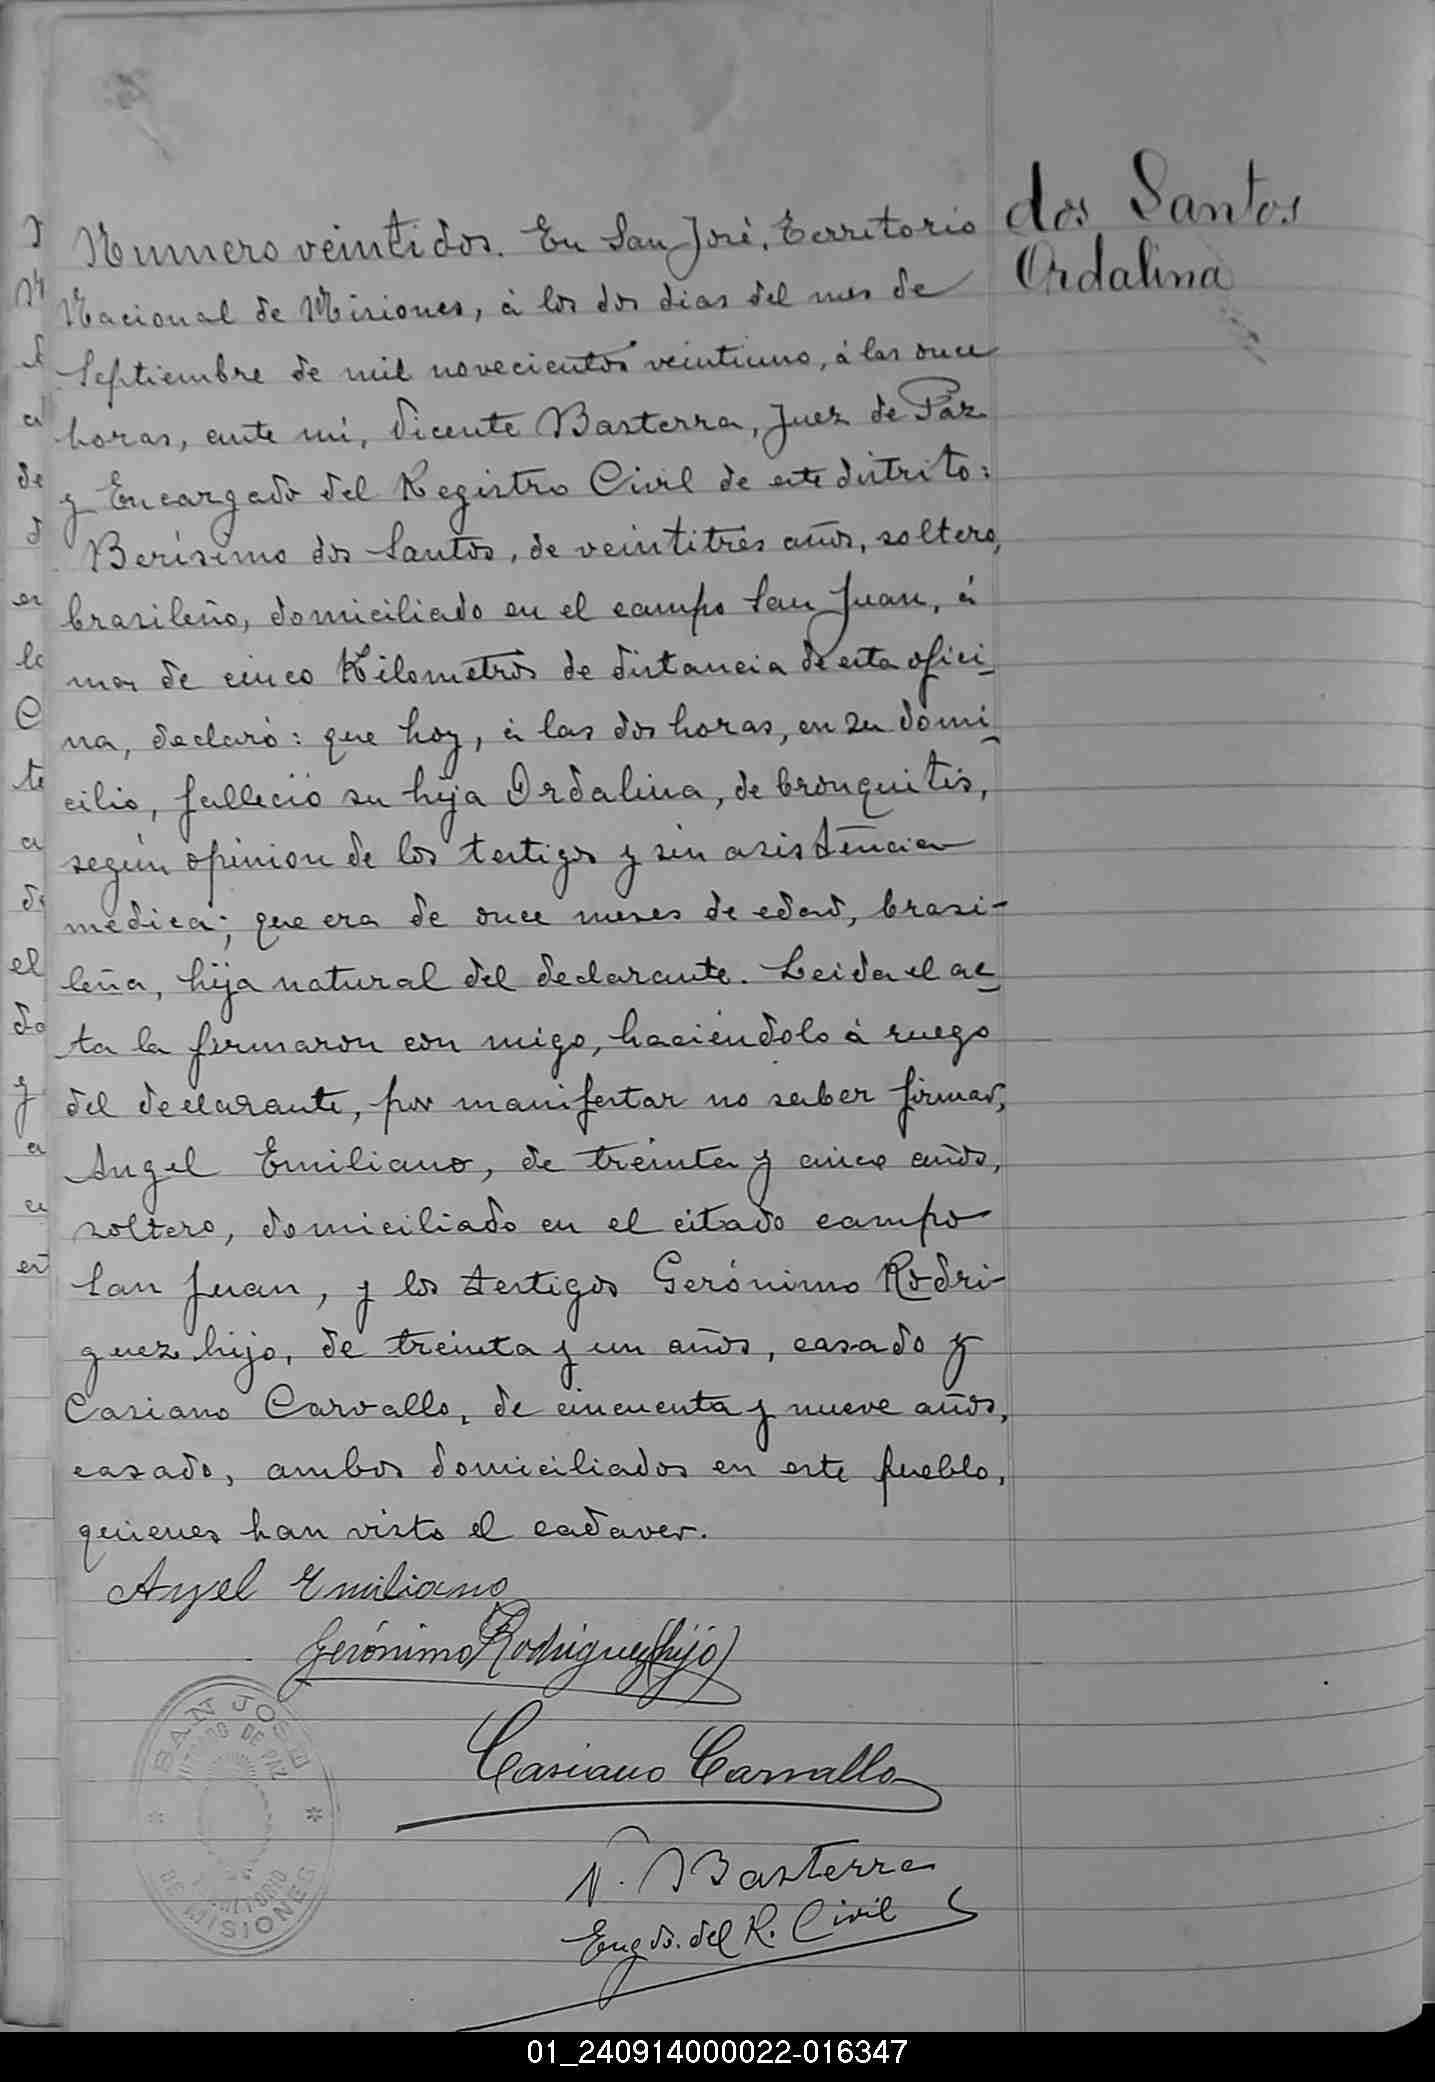 dos Santos
Ordalina
Numero veintidos. En San José, Territorio
Nacional de Misiones, á los dos dias del mes de
Septiembre de mil novecientos veintiuno, á las once
horas, ante mi, Vicente Basterra, Juez de Paz
y Encargado del Registro Civil de este distrito:
Berísimo dos Santos, de veintitres años, soltero,
brasileño, domiciliado en el campo San Juan, á
mas de cinco Kilometros de distancia de esta ofici
na, declaró: que hoy, á las dos horas, en su domi
cilio, falleció su hija Ordalina, de bronquitis,
según opinion de los testigos y sin asistencia
medica; que era de once meses de edad, brasi-
leña, hija natural del declarante. Leida el ac
ta la firmaron con migo, haciéndolo á ruego
del declarante, por manifestar no saber firmar,
Angel Emiliano, de treinta y cinco años,
soltero, domiciliado en el citado campo
San Juan, y los testigos Gerónimo Rodri-
guez hijo, de treinta y un años, casado y
Casiano Carvallo, de cincuenta y nueve años,
casado, ambos domiciliados en este pueblo,
quienes han visto el cadaver.
Angel Emiliano
Gerónimo Rodriguez (hijo)
Casiano Carvallo
V. Basterra
Engdo. del R. Civil
SAN JOSE
JUZGADO DE PAZ
TERRITORIO
DE MISIONES
01_240914000022-016347